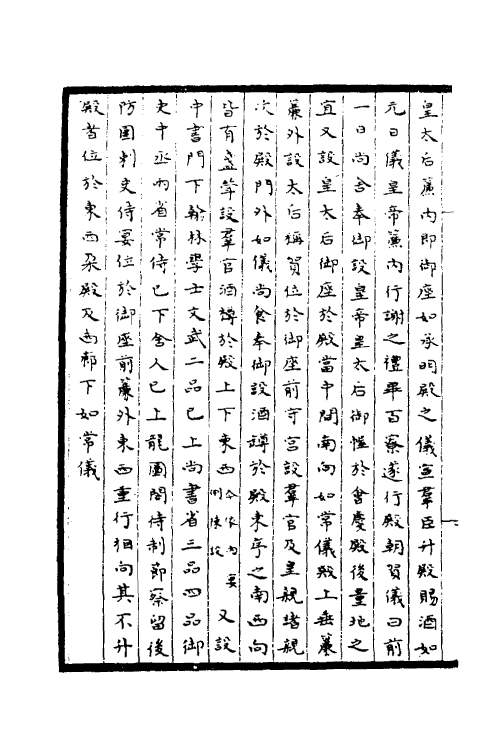 皇太后簾內即御座如承明殿之儀宣羣臣升殿賜酒如
元日儀皇帝簾內行謝之禮畢百寮遂行殿朝賀儀曰前
一日尚舍奉御設皇帝皇太后御幄於會慶殿後量地之
宜又設皇太后御座於殿當中間南向如常儀殿上垂簾
簾外設太后稱賀位於御座前守宮設羣官及皇親諸親
次於殿門外如儀尚食奉御設酒罇於殿東序之南西向
皆有盞斝設羣官酒罇於殿上下東西
又設
中書門下翰林學士文武二品已上尚書省三品四品御
史中丞兩省常侍已下舍人已上龍圖閣侍制節察留後
防團刺史侍宴位於御座前簾外東西重行相向其不升
殿者位於東西朶殿及兩廊下如常儀